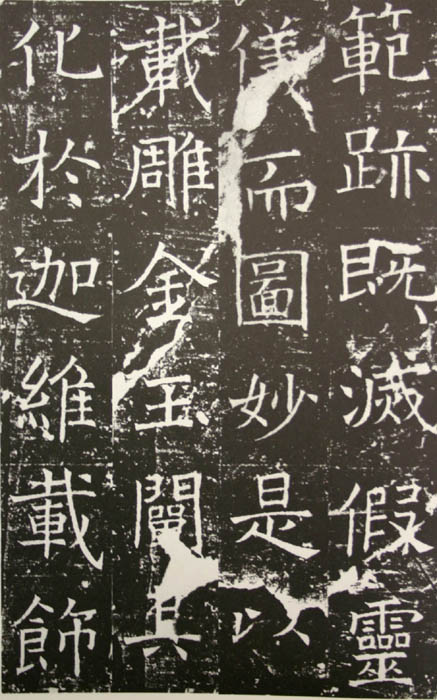 範跡既滅假靈
儀而圖妙是以
載雕金玉闡其
化於迦維載飾